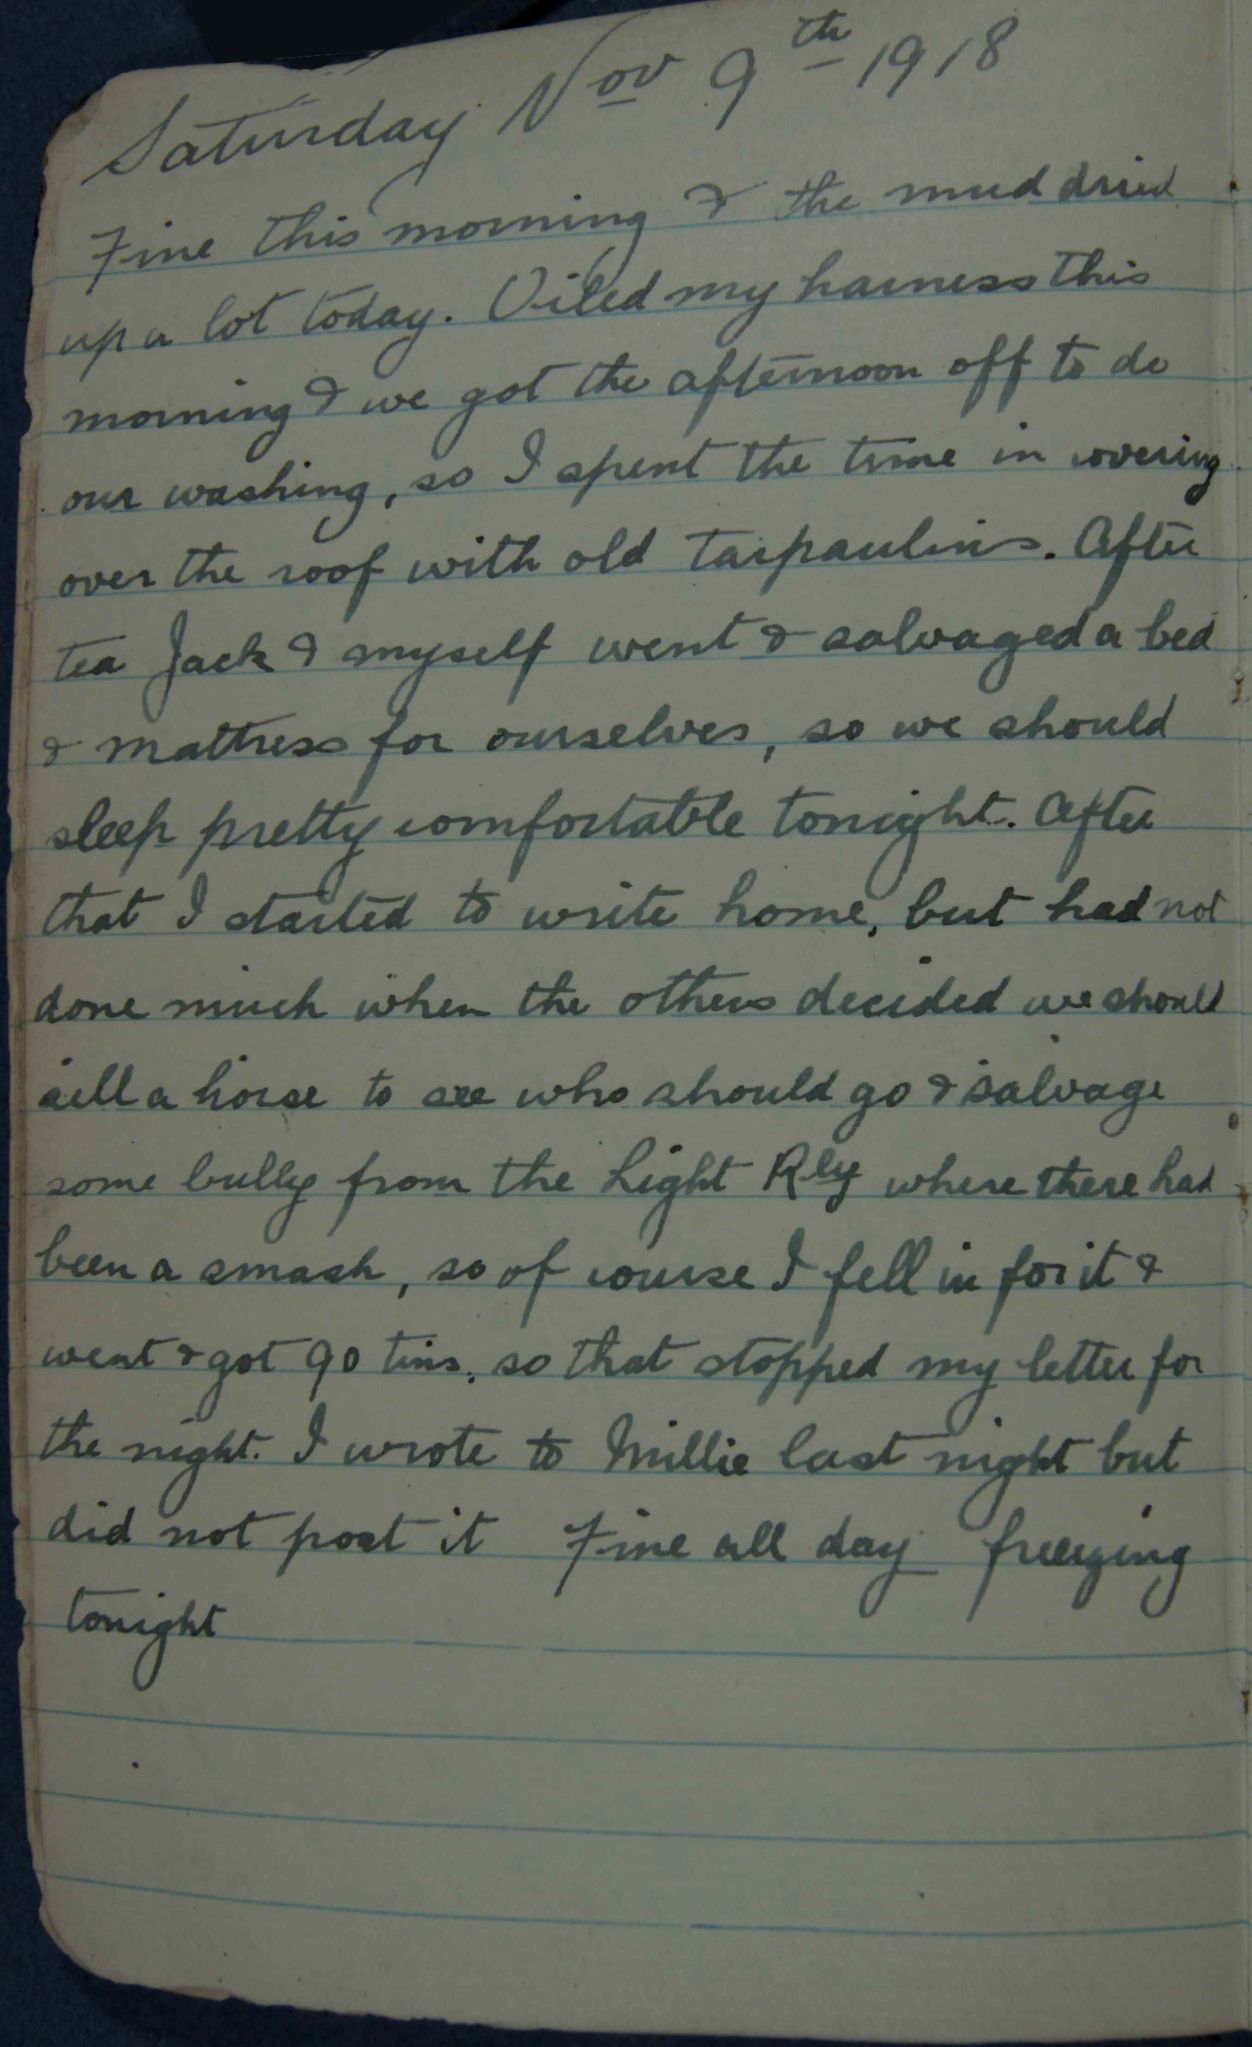 Saturday Nov 9th 1918
Fine this morning & the mud dried
up a lot today. Oiled my harness this
morning & we got the afternoon off to do
our washing, so I spent the time in covering
over the roof with old tarpaulins. After
tea Jack & myself went & salvaged a bed
& mattress for ourselves, so we should
sleep pretty comfortable tonight. After
that I started to write home, but had not
done much when the others decided we should
sell a horse to see who should go & salvage
some bully from the Light Rly where there had
been a smash, so of course I fell in for it &
went & got 90 tins, so that stopped my letter for
the night. I wrote to Millie last night but
did not post it Fine all day freezing
tonight